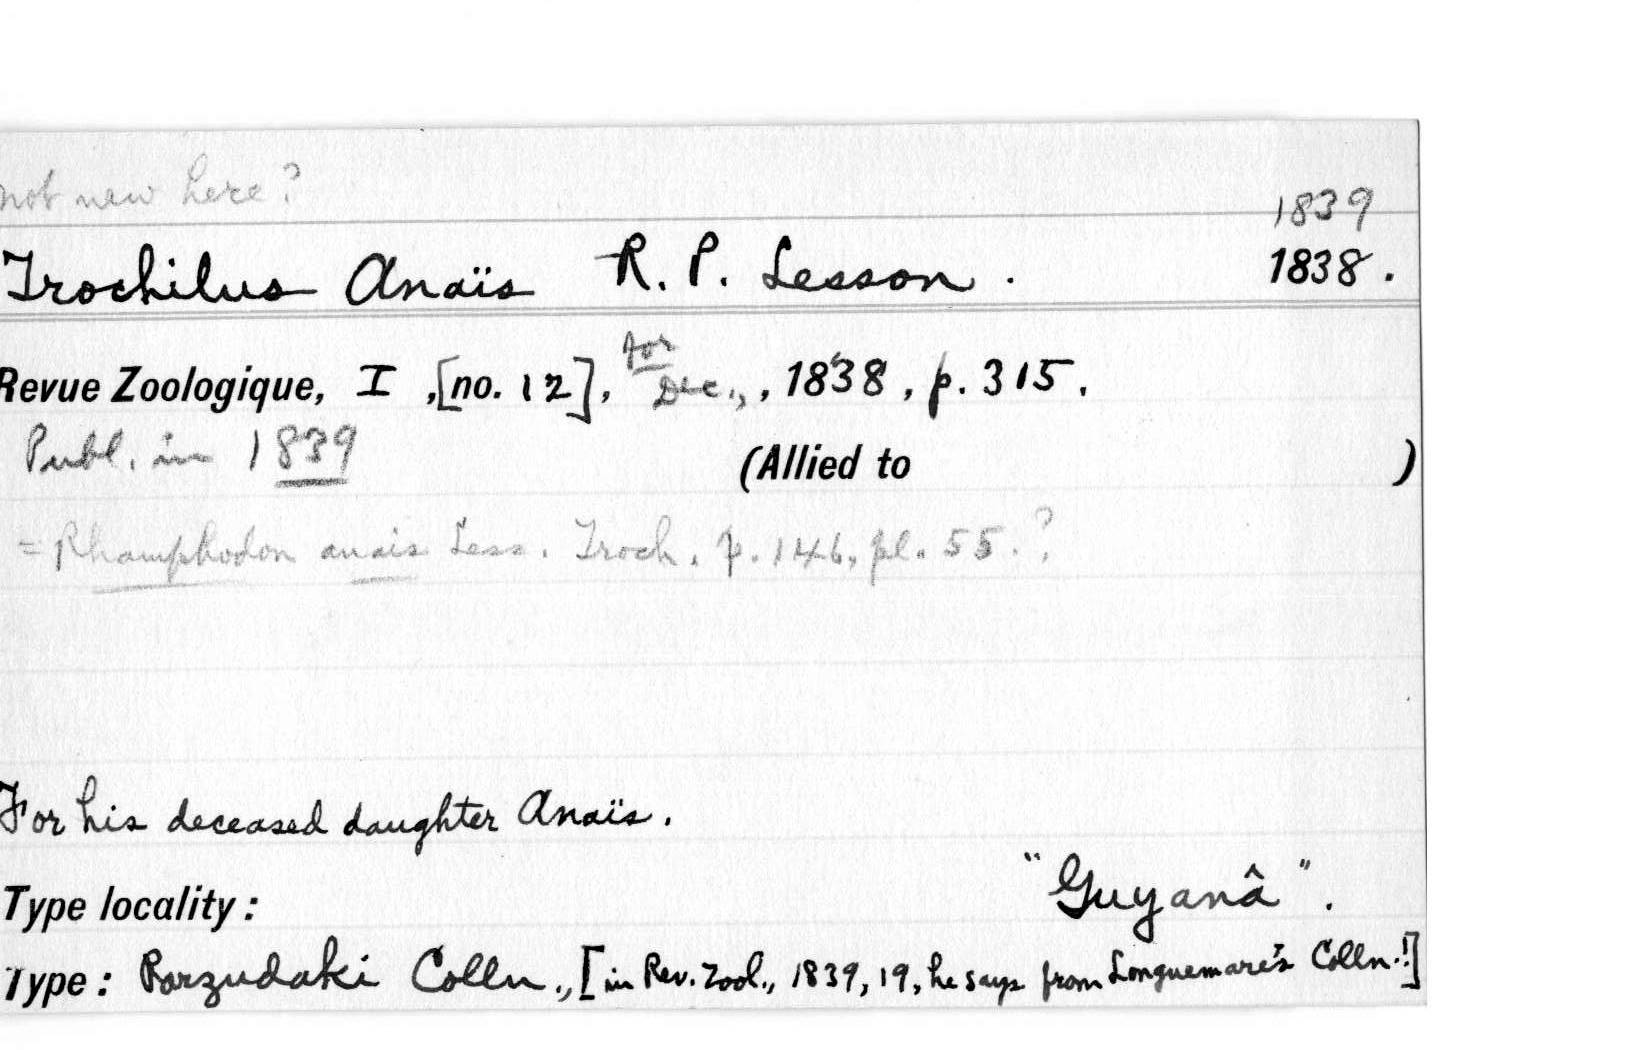 not new here?
1839
Trochilus Anaïs R. P. Lesson. 1838.
Revue Zoologique, I, [no. 12], for Dec., , 1838, p. 315.
Publ. in 1839
(Allied to )
= Rhamphodon anais Less. Troch. p. 146, pl. 55.?
For his deceased daughter Anaïs.
Type locality: "Guyanâ".
Type: Parzudaki Colln., [in Rev. Zool., 1839, 19, he says from Longuemare's Colln.!]